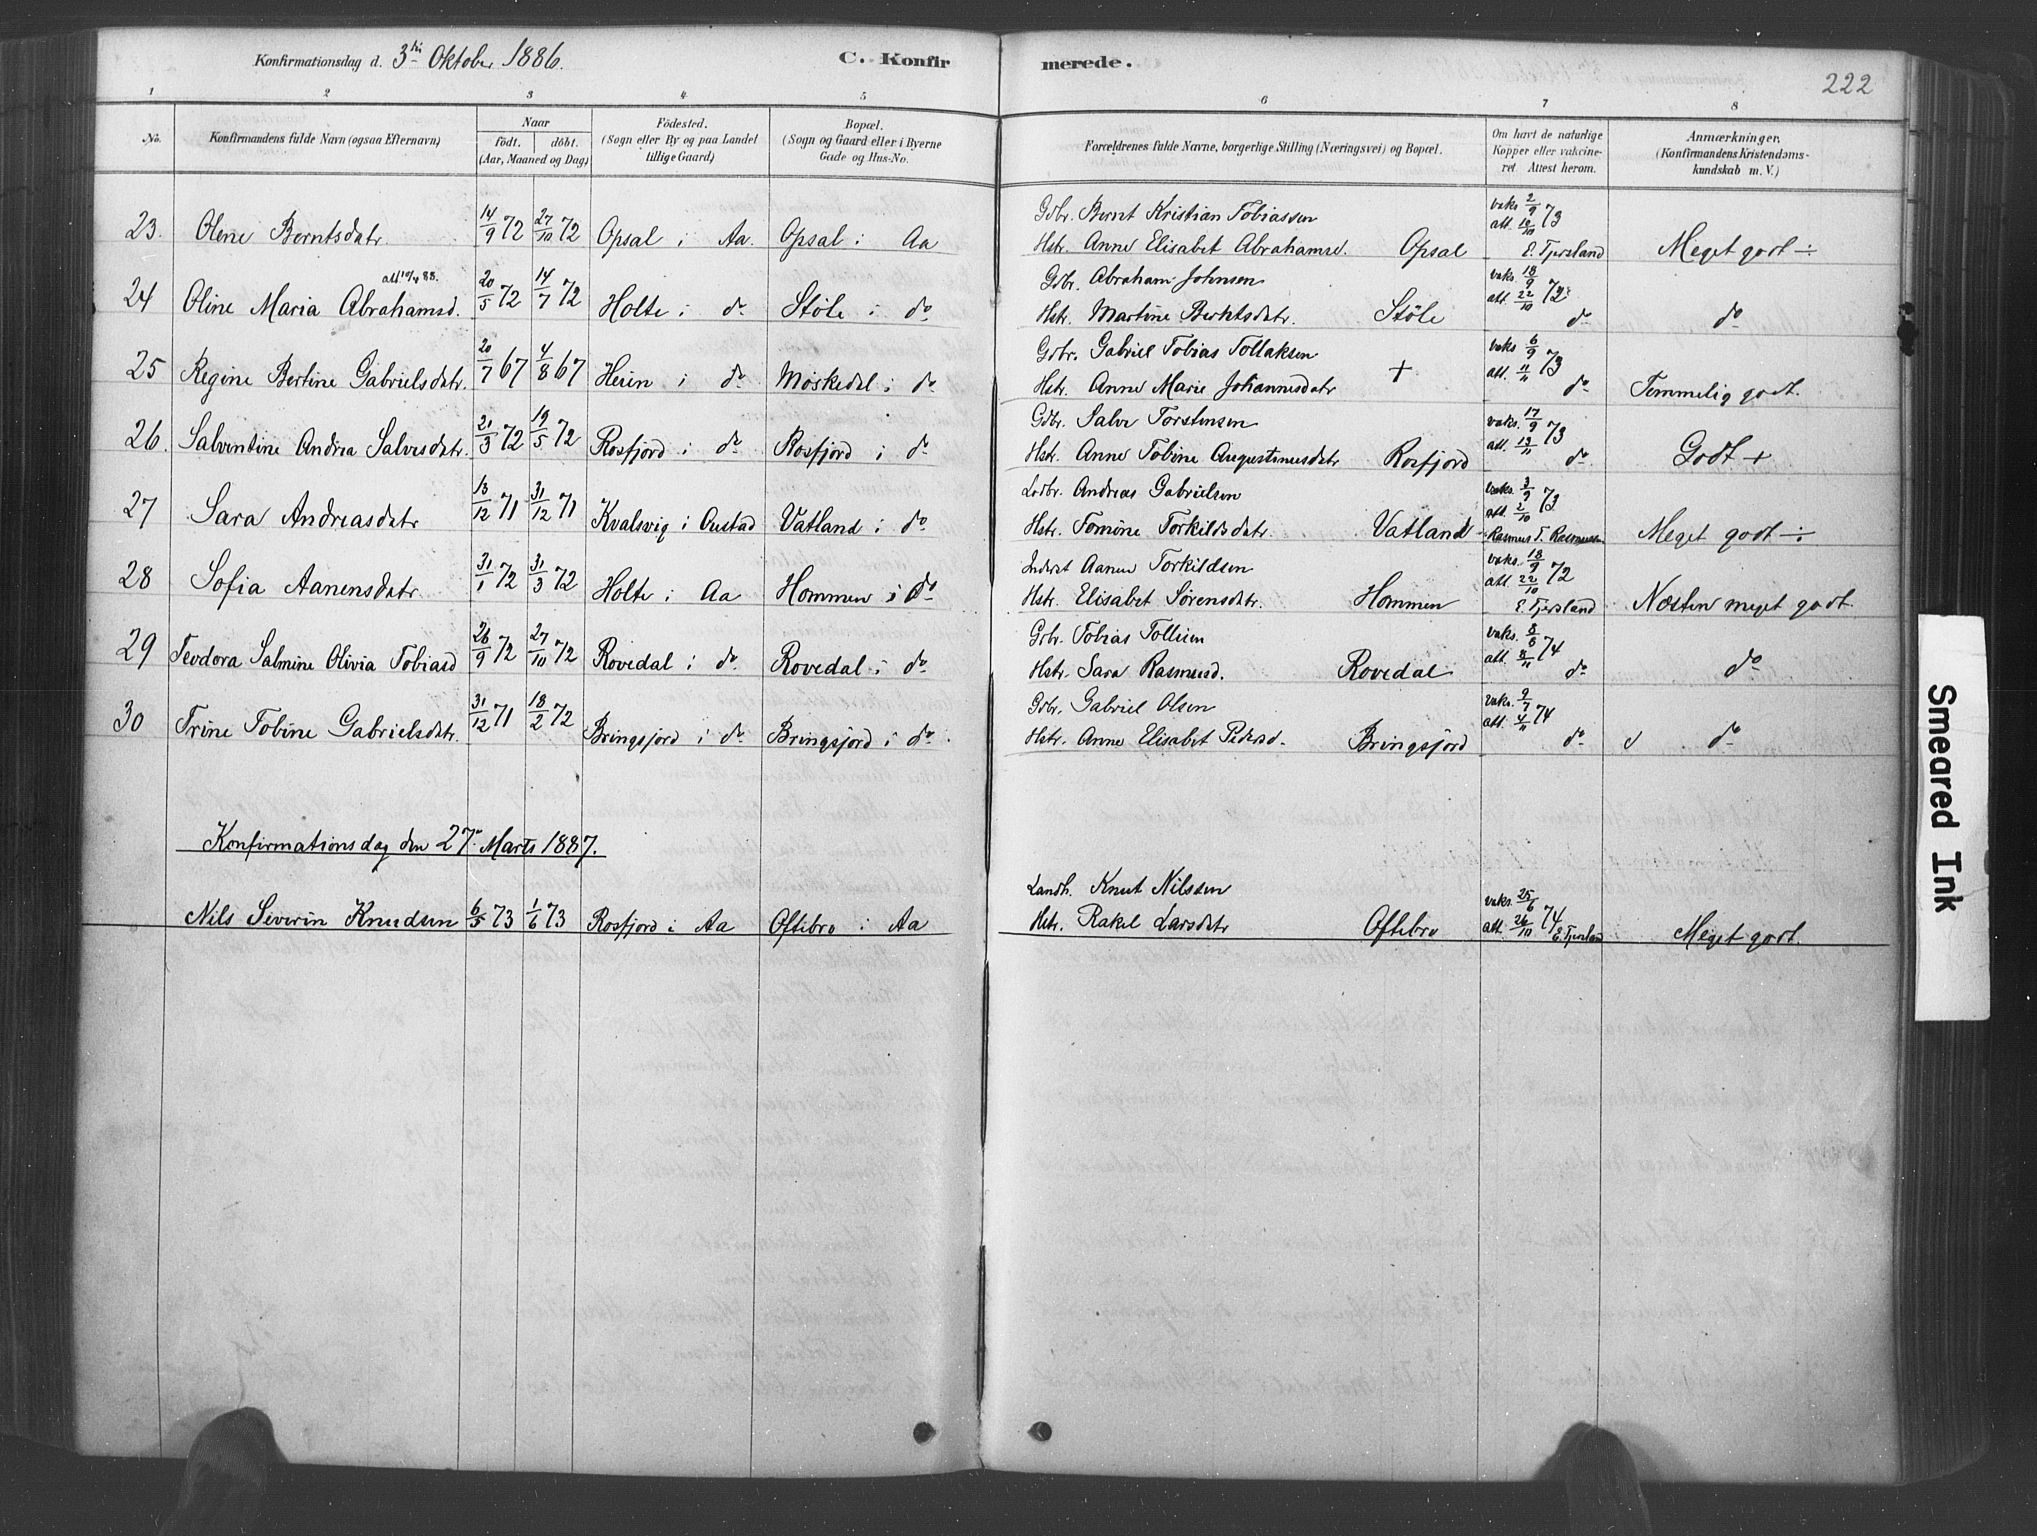 Konfirmationsdag d. 3die Oktober 1886.
C. Konfirmerede.
222
1 2 3 4 5 6 7 8
No.
Konfirmandens fulde Navn (ogsaa Efternavn)
Naar
födt. döbt.
(Aar, Maaned og Dag)
Födested.
(Sogn eller By og paa Landet
tillige Gaard)
Bopæl.
(Sogn og Gaard eller i Byerne
Gade og Hus-No.
Forældrenes fulde Navne, borgerlige Stilling (Næringsvei) og Bopæl.
Om havt de naturlige
Kopper eller vakcine-
ret Attest herom.
Anmærkninger.
(Konfirmandens Kristendoms-
kundskab m. V.)
Gdbr. Bernt Kristian Tobiassen vaks 2/9 73
23. Olene Berntsdatr 14/9 72 27/10 72 Opsal i Aa. Opsal i Aa Hstr. Anne Elisabet Abrahamsd. Opsal att. 12/10 E. Tjersland Meget godt ÷
att 10/4 88.
Gdbr. Abraham Johnsen vaks 18/9 72
24 Oline Maria Abrahamsd. 20/5 72 14/7 72 Holte i do Støle i do Hstr. Martine Berntsdatr. Støle att. 22/10 do do
Gdbr. Gabriel Tobias Tollaksen vaks 6/9 73
25 Regine Bertine Gabrielsdatr. 20/7 67 4/8 67 Heien i do Møskedal i do Hstr. Anne Marie Johannesdatr + att. 11/11 do Temmelig godt.
Gdbr. Salve Torstensen vaks. 17/9 73
26. Salventine Andrea Salvesdatr. 21/3 72 19/5 72 Rosfjord i do Rosfjord i do Hstr. Anne Tobine Augustinusdatr Rosfjord att. 13/11 do Godt +
Lodbr. Andreas Gabrielsen vaks. 3/9 73
27 Sara Andreasdatr 13/12 71 31/12 71 Kvalsvig i Austad Vatland i do Hstr. Tomine Torkildsdatr. Vatland att. 2/10 Rasmus T. Rasmussen Meget godt ÷
Inderst Aanen Torkildsen vaks. 18/9 72
28 Sofia Aanensdatr. 31/1 72 31/3 72 Holte i Aa Hommen i do Hstr. Elisabet Sørensdatr. Hommen att 22/10 E. Tjersland Næsten meget godt.
Grbr. Tobias Tollisen vaks. 8/6 74
29 Teodora Salmine Olivia Tobiasd 26/9 72 27/10 72 Rovedal i do Rovedal i do Hstr. Sara Rasmusd. Rovedal att. 8/11 do do
Grbr. Gabriel Olsen vaks. 9/7 74
30 Trine Tobine Gabrielsdatr. 31/12 71 18/2 72 Bringsjord i do Bringsjord i do. Hstr. Anne Elisabet Pedersd. Bringsjord att. 4/11 do do
Konfirmationsdag den 27de Marts 1887.
Landh. Knut Nilssen vaks. 25/6 74
Nils Severin Knudsen 6/5 73 1/6 73 Rosfjord i Aa Oftebro i Aa Hstr. Rakel Larsdatr Oftebro att. 26/10 E. Tjersland Meget godt.
Smeared Ink